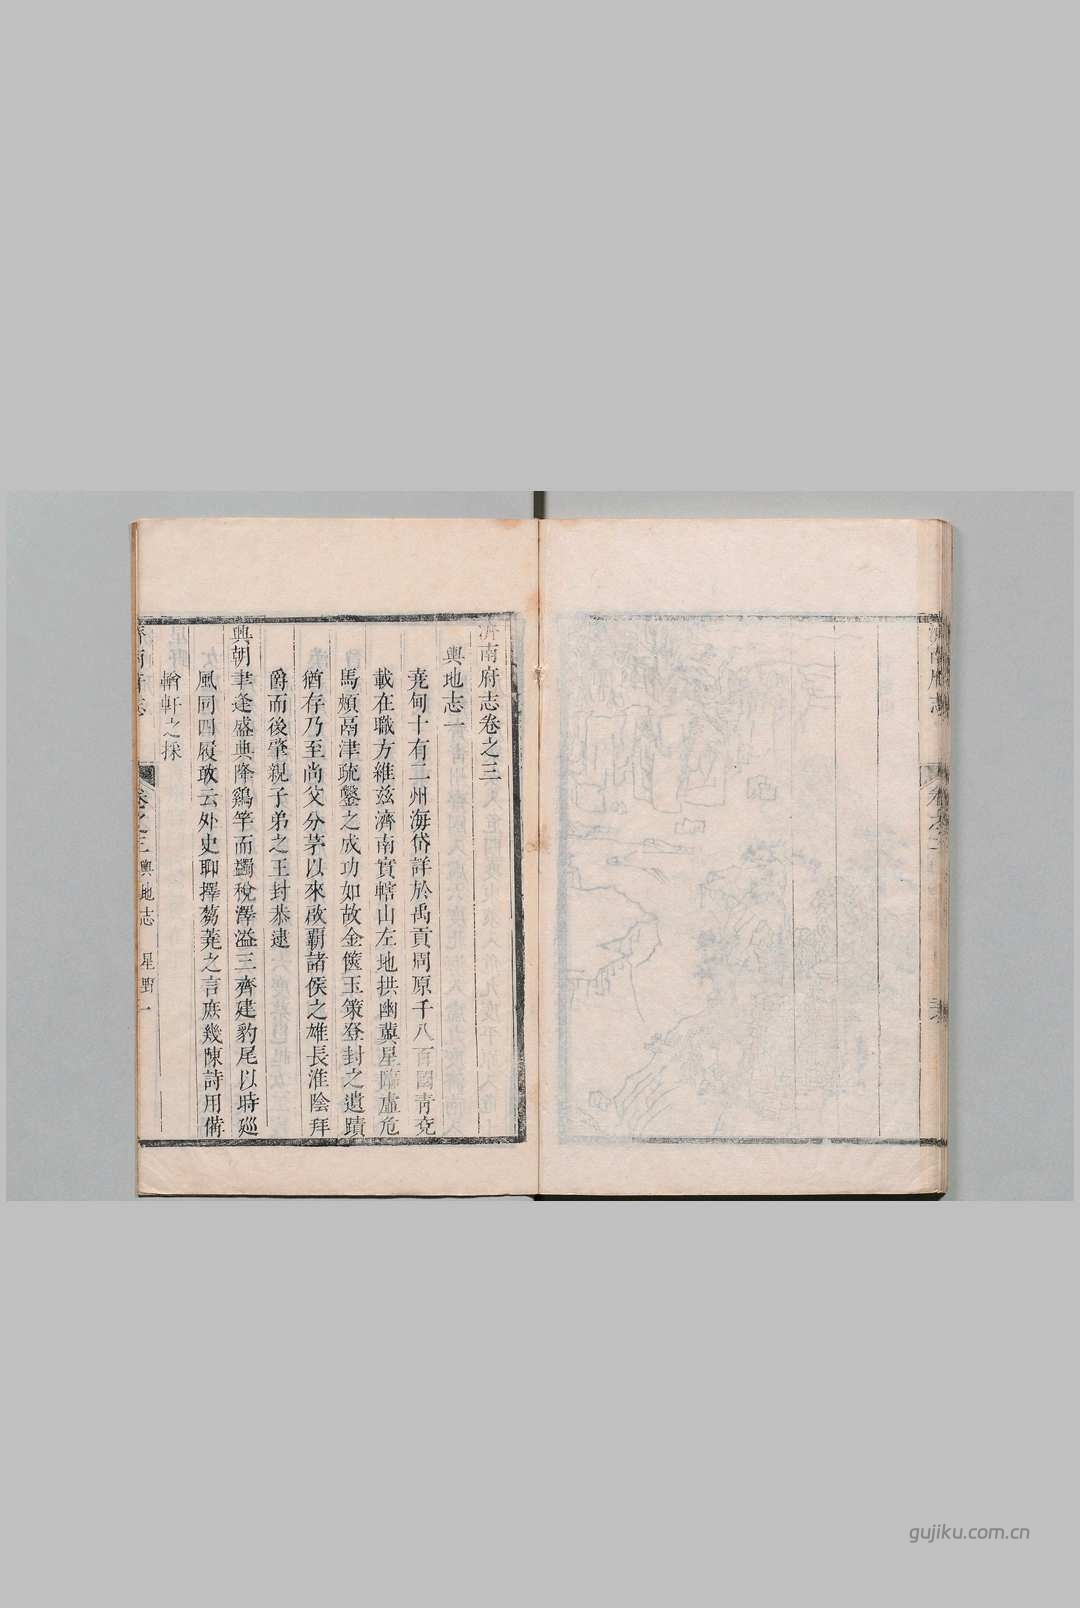 濟南府志卷之三
輿地志一
堯甸十有二州海岱詳於禹貢周原千八百國青兗
載在職方維茲濟南實轄山左地拱幽冀星臨虛危
馬頰鬲津疏鑿之成功如故金篋玉策登封之遺蹟
猶存乃至尚父分茅以來啟霸諸侯之雄長淮陰拜
爵而後肇親子弟之王封恭逮
興朝聿逢盛典降鷄竿而蠲稅澤溢三齊建豹尾以時廵
風同四履敢云外史聊擇蒭蕘之言庶幾陳詩用備
輶軒之採
濟南府志 卷之三 輿地志 星野 一
gujiku.com.cn